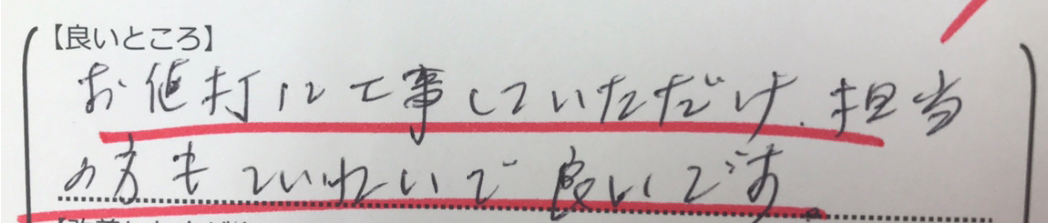 【良いところ】
お値打に工事していただけ、担当
の方もていねいで良いです。